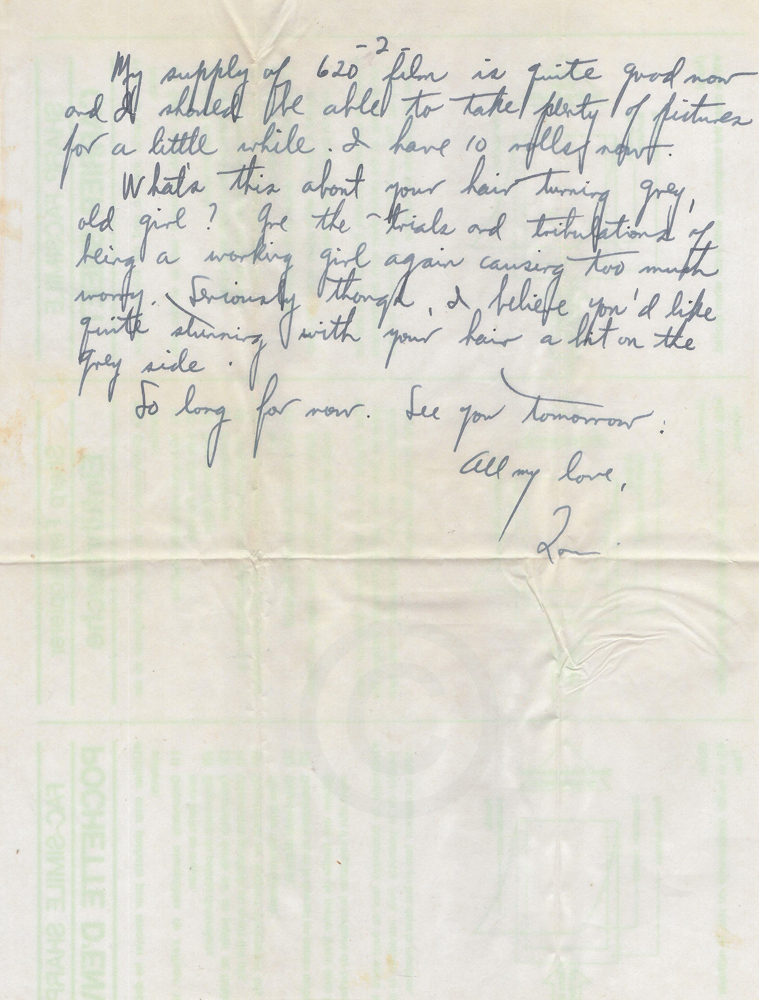 -2-
My supply of 620 film is quite good now
and I should be able to take plenty of pictures
for a little while. I have 10 rolls now.
What's this about your hair turning grey,
old girl? Are the trials and tribulations of
being a working girl again causing too much
worry. Seriously though, I believe you'd like
quite stunning with your hair a bit on the
grey side.
So long for now. See you tomorrow.
All my love,
POCHETTE D'ENV
FAC-SIMILE SHARP